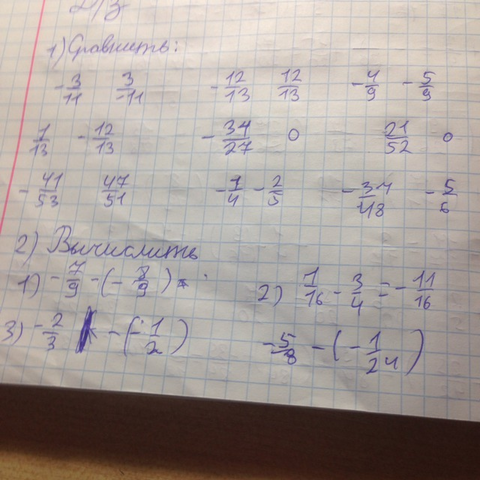 Д/З
1) Сравнить:
-3/11 3/-11 -12/13 12/13 -4/9 -5/9
1/13 -12/13 -34/27 0 21/52 0
-41/53 47/51 -1/4 -2/5 -37/48 -5/6
2) Вычислить
1) -7/9 -(-8/9) = 2) 1/16 - 3/4 = -11/16
3) -2/3 -(-1/2) -5/8 -(-1/24)